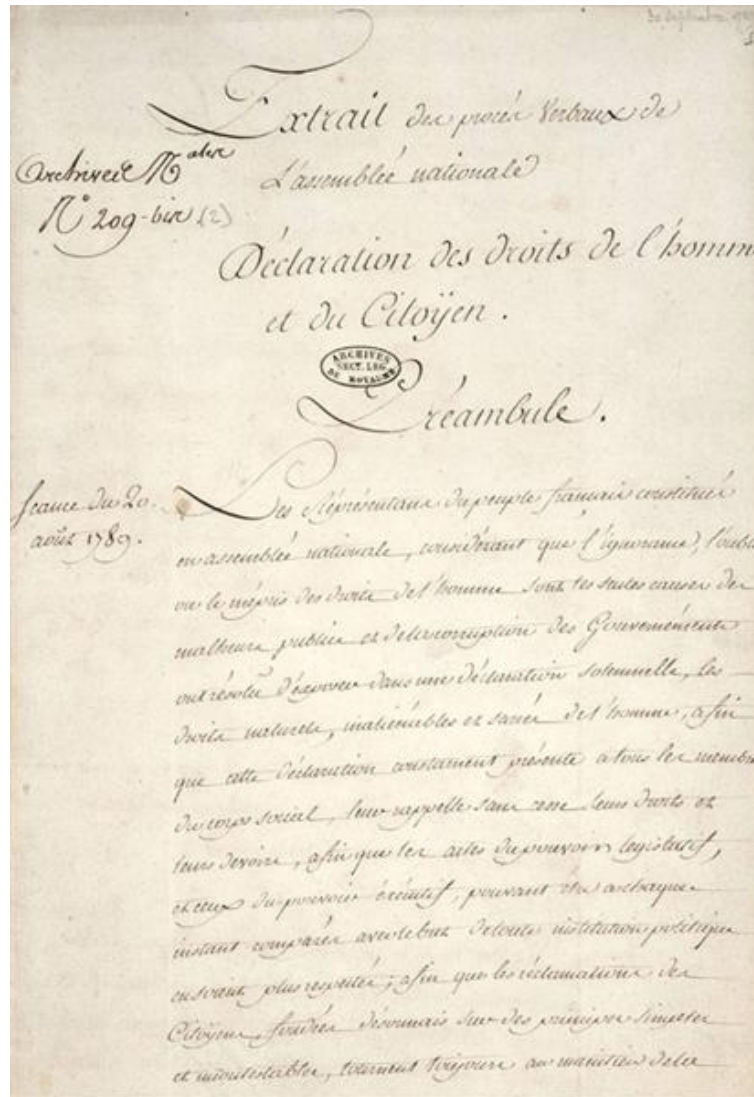 30 septembre
Extrait des procès Verbaux de
L'assemblée nationale
Archives
N° 209-bis (2)
Déclaration des droits de l'homm
et du Citoÿen.
ARCHIVES
SECT. LEG.
DU ROYAUME
Préambule.
Séance du 20
août 1789.
Les Réprésentans du peuple français constitués
en assemblée nationale, considérant que l'ignorance, l'oubli
ou le mépris des droits de l'homme sont les seules causes des
malheurs publics et de la corruption des Gouvernements
ont résolu d'exposer dans une déclaration solemnelle, les
droits naturels, inaliénables et sacrés de l'homme, afin
que cette déclaration constament présente a tous les membre
du corps social, leur rappelle sans cesse leurs droits et
leurs devoirs, afin que les actes du pouvoir législatif,
et ceux du pouvoir éxécutif, pouvant être a chaque
instant comparés avec le but de toute institution politique
en soient plus respectés; afin que les réclamations des
Citoÿens, fondées désormais sur des principes simples
et incontestables, tournent toujours au maintien de la